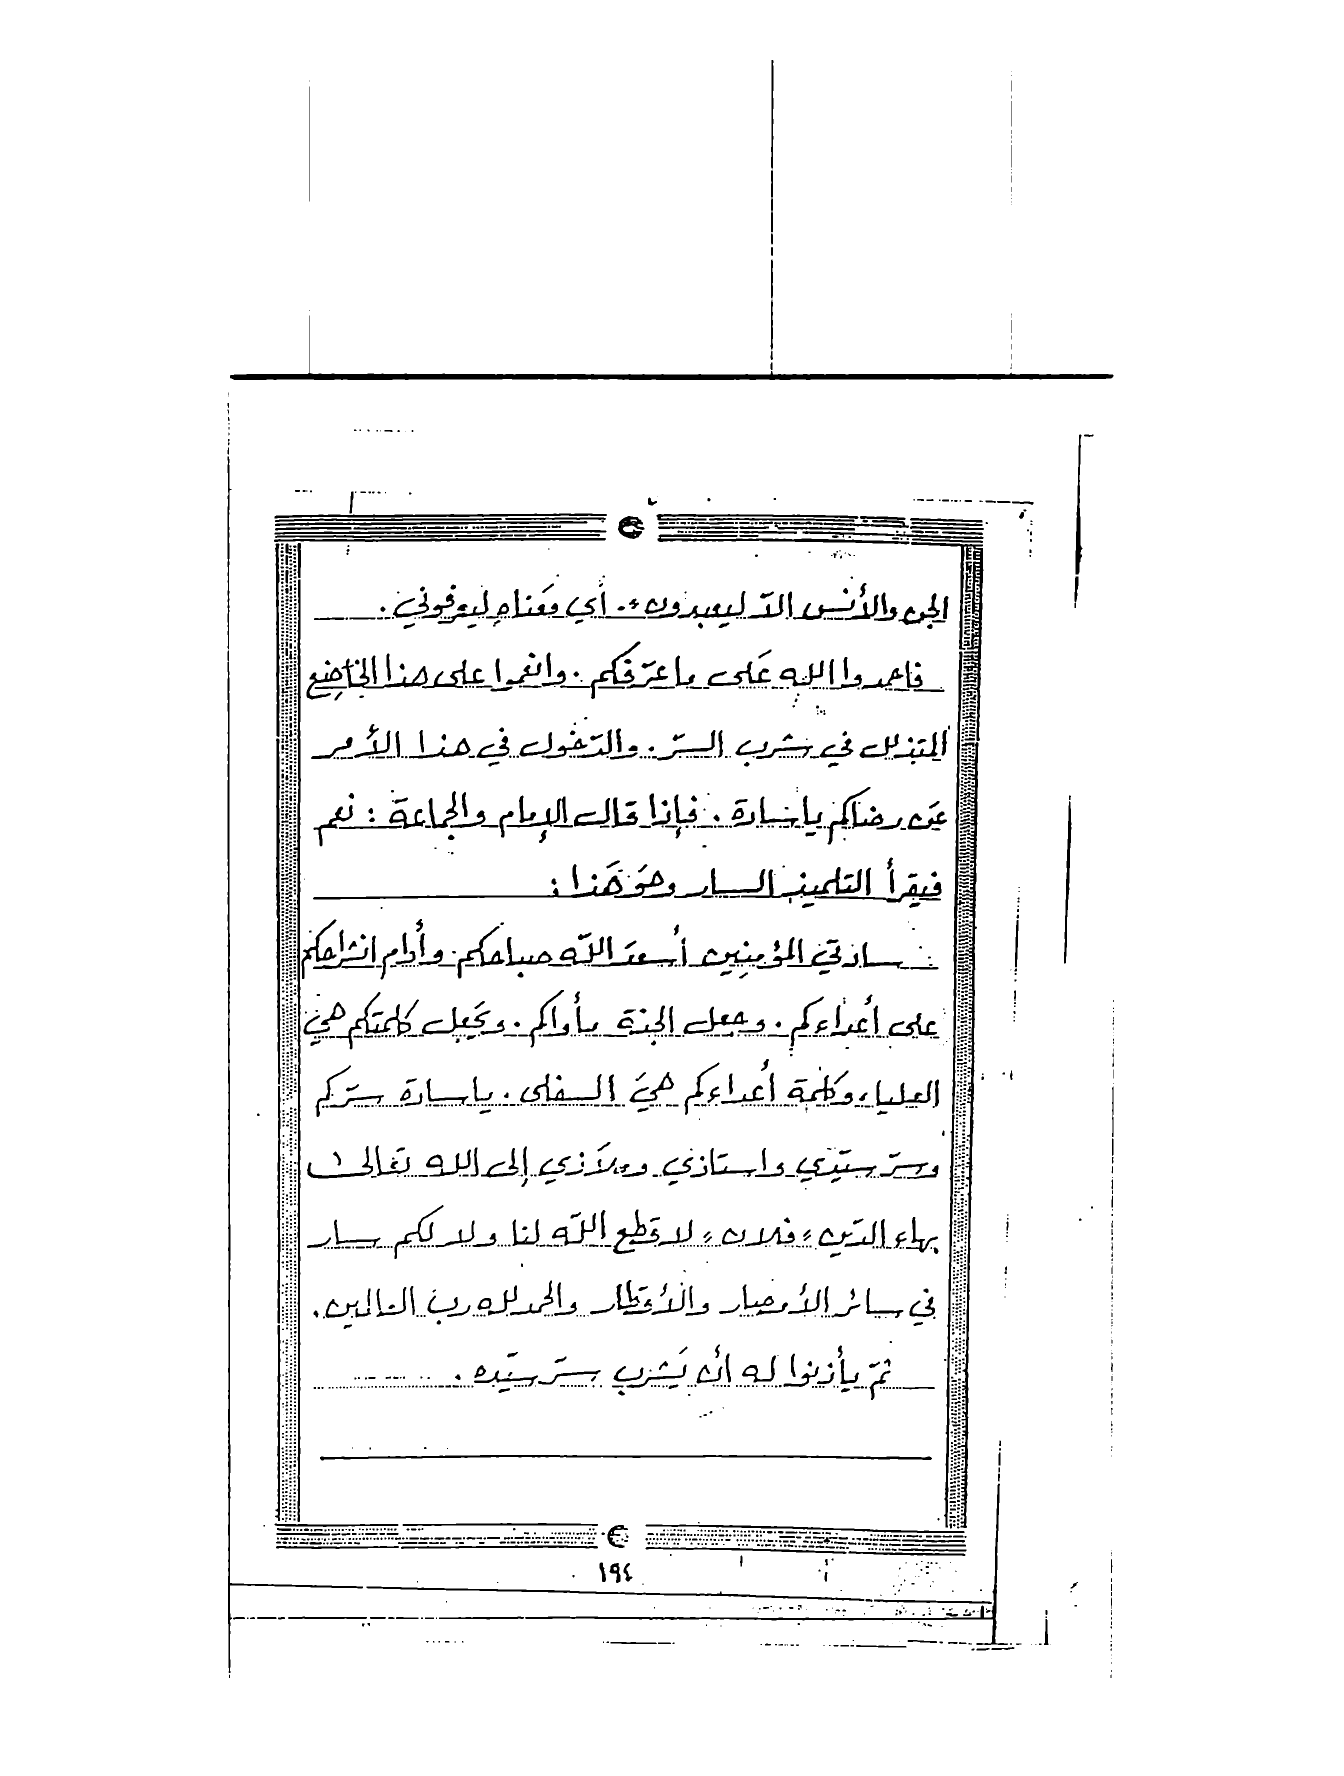 الجن والأنس الاّ ليعبدون». أي مَعناه ليعرفوني.
فاحمدوا الله عَلى ما عرّفكم. وانعموا على هذا الخاضِع
المتذلل في شرب السرّ. والدّخول في هذا الأمر
عَن رضاكم يا سادة. فإذا قال الإمام والجماعة: نعم
فيقرأ التلميذ السار وهوَ هَذا:
سادتي المؤمِنين أسعدَ اللّه صباحكم. وأدام انشراحكم
على أعداءكم. وجعل الجنة مأواكم. ويَجعل كلمتكم هيَ
العليا، وكلمة أعداءكم هيَ السفلى. يا سادة سرّكم
وسرّ سيّدي واستاذي وملاَذي إلى الله تعَالى
بهاء الدّين «فلان» لا قطع اللّه لنا ولا لكم سار
في سائر الأمصار والأقطار والحمد لله ربّ العالمين.
ثمّ يأذنوا له أن يَشرب سرّ سيّده.
١٩٤